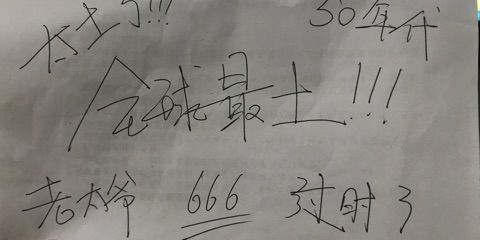 太土了!!! 50年代
全球最土!!!
老大爷 666 过时了